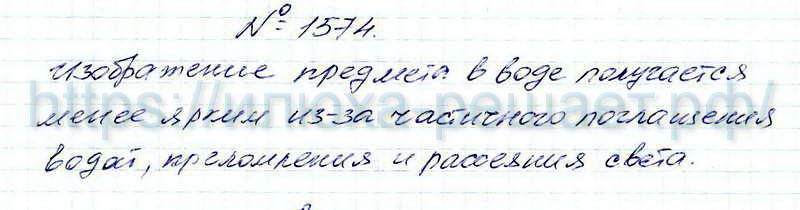 № 1574.
Изображение предмета в воде получается
менее ярким из-за частичного поглащения
водой, преломления и рассеяния света.